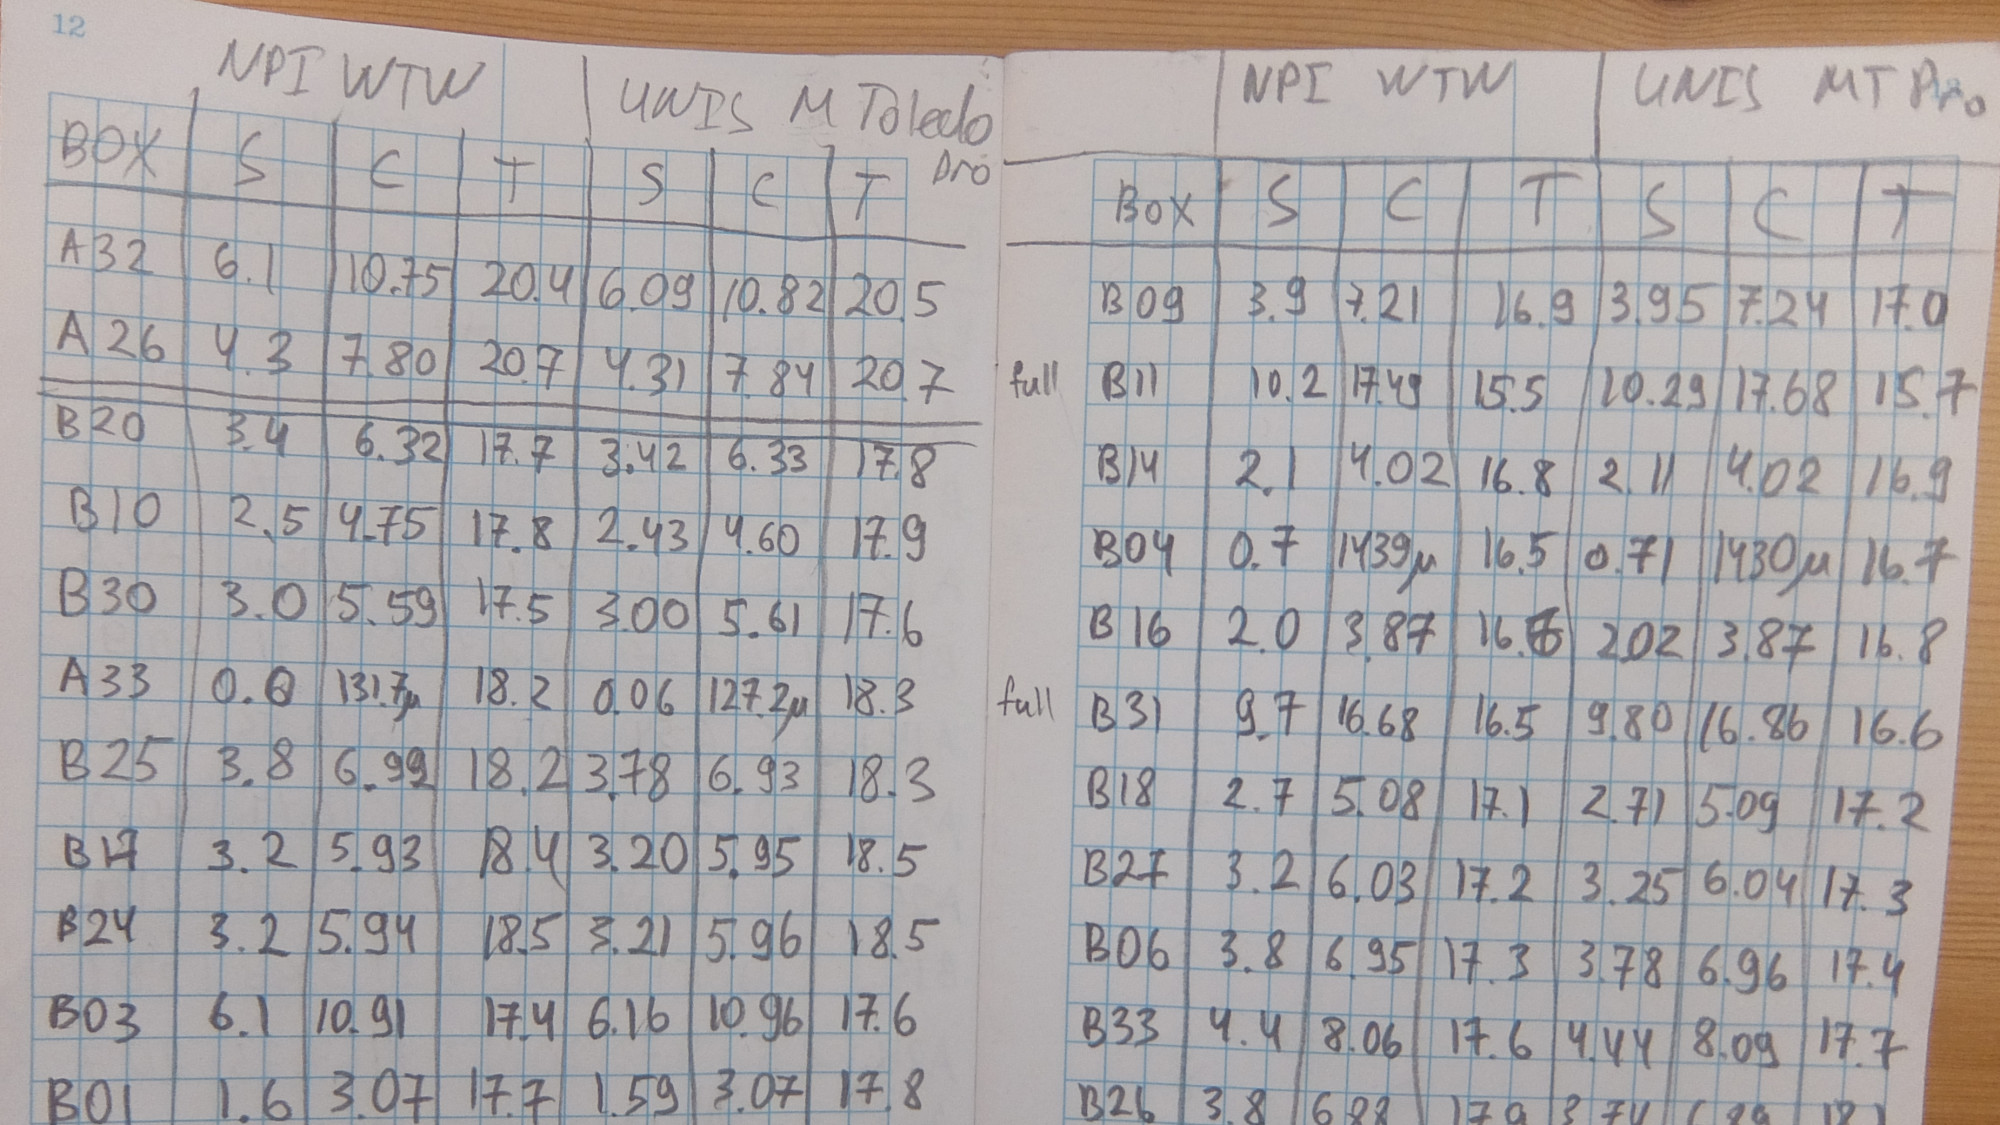 12
NPI WTW UNIS M Toledo Pro
BOX S C T S C T
A32 6.1 10.75 20.4 6.09 10.82 20.5
A26 4.3 7.80 20.7 4.31 7.84 20.7
B20 3.4 6.32 17.7 3.42 6.33 17.8
B10 2.5 4.75 17.8 2.43 4.60 17.9
B30 3.0 5.59 17.5 3.00 5.61 17.6
A33 0.0 131.7µ 18.2 0.06 127.2µ 18.3
B25 3.8 6.99 18.2 3.78 6.93 18.3
B17 3.2 5.93 18.4 3.20 5.95 18.5
B24 3.2 5.94 18.5 3.21 5.96 18.5
B03 6.1 10.91 17.4 6.16 10.96 17.6
B01 1.6 3.07 17.7 1.59 3.07 17.8
NPI WTW UNIS MT Pro
BOX S C T S C T
B09 3.9 7.21 16.9 3.95 7.24 17.0
full B11 10.2 17.49 15.5 10.29 17.68 15.7
B14 2.1 4.02 16.8 2.11 4.02 16.9
B04 0.7 1439µ 16.5 0.71 1430µ 16.7
B16 2.0 3.87 16. 2.02 3.87 16.8
full B31 9.7 16.68 16.5 9.80 16.86 16.6
B18 2.7 5.08 17.1 2.71 5.09 17.2
B27 3.2 6.03 17.2 3.25 6.04 17.3
B06 3.8 6.95 17.3 3.78 6.96 17.4
B33 4.4 8.06 17.6 4.44 8.09 17.7
B26 3.8 17.9 3.74